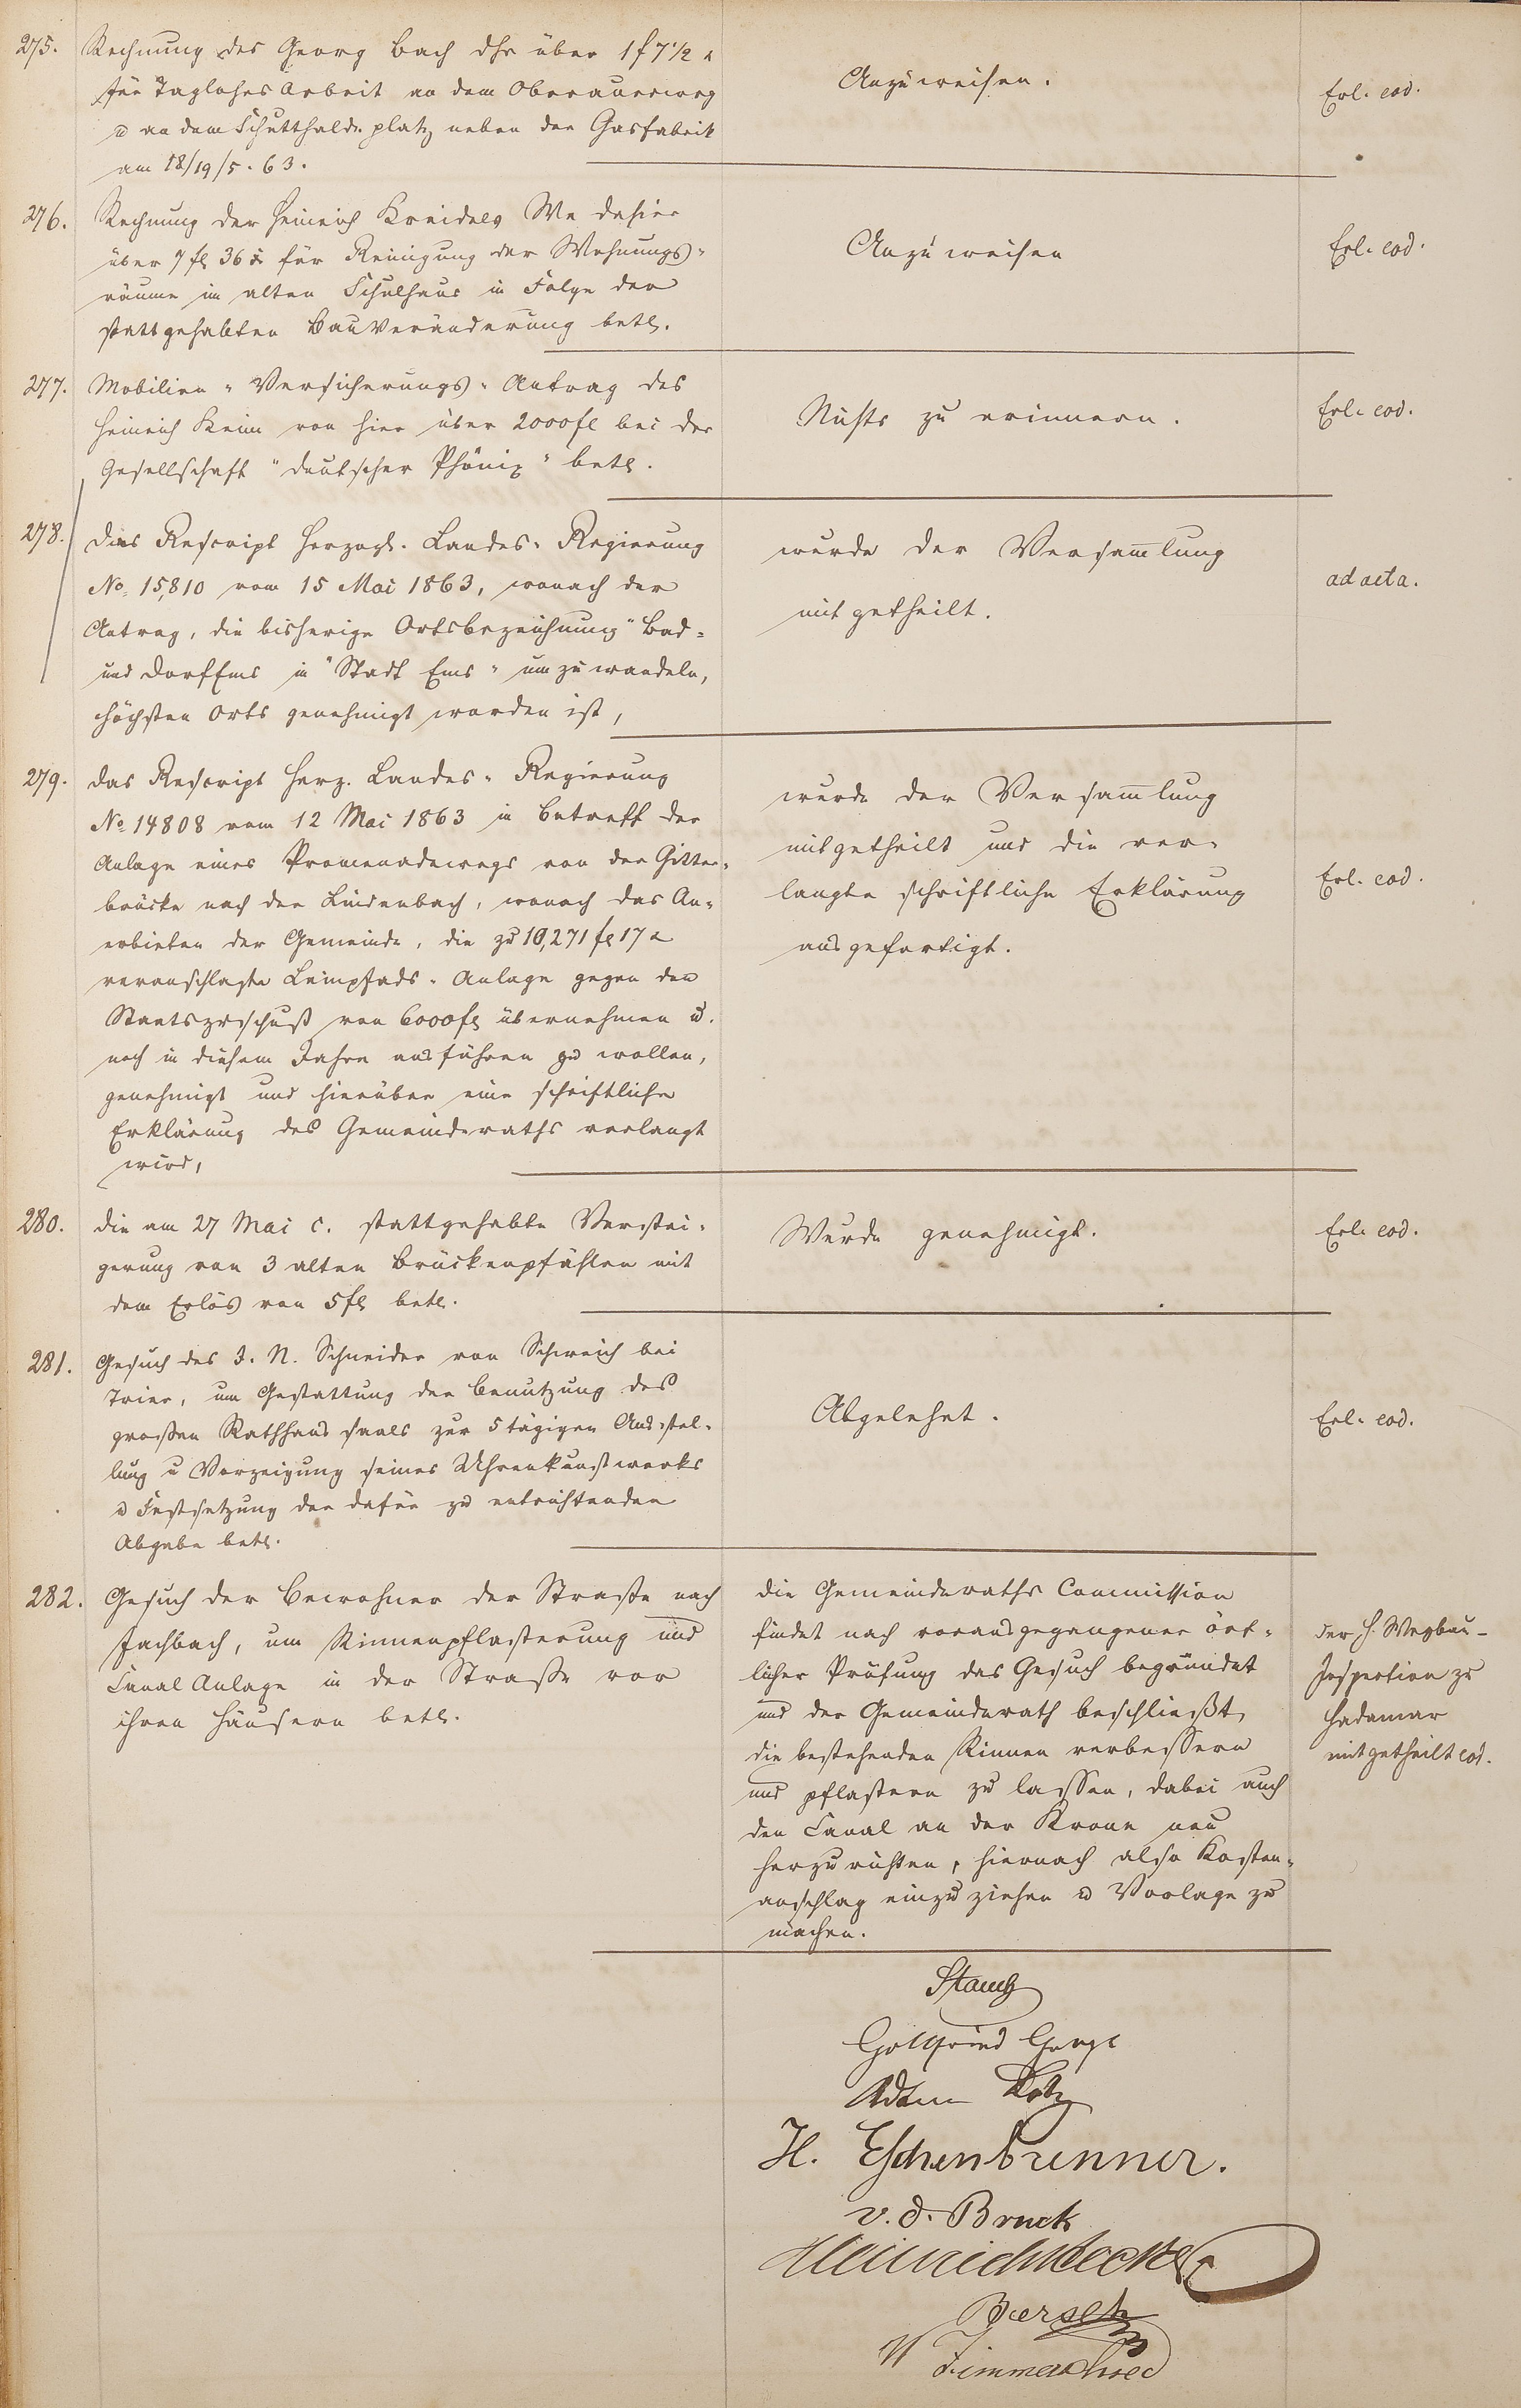 275.
Rechnung des Georg Bach dhr über 1 f 7 1/2 x
für Taglohns Arbeit an dem Oberauerweg
u an dem Schutthalde. platz neben der Gasfabrik
am 18/19/5. 63.
Anzuweisen.
Erl. eod.
276.
Rechnung der Heinrich Kreidels We dahier
über 7 fl 36 x für Reinigung der Wohnungs-
räume im alten Schulhaus in Folge der
stattgehabten Bauveränderung betr.
Anzuweisen
Erl. eod.
277.
Mobilien-Versicherungs-Antrag des
Heinrich Keim von hier über 2000 fl bei der
Gesellschaft "deutscher Phönix" betr.
Nichts zu erinnern.
Erl. eod.
278.
das Rescript Herzogl. Landes-Regierung
No. 15,810 vom 15 Mai 1863, wonach der
Antrag, die bisherige Ortsbezeichnung "Bad-
und Dorf Ems in "Stadt Ems" umzuwandeln,
höchsten Orts genehmigt worden ist,
wurde der Versam̅lung
mitgetheilt.
ad acta.
279.
das Rescript Herz. Landes-Regierung
No. 14808 vom 12 Mai 1863 in Betreff der
Anlage eines Promenadewegs von der Gitter-
brücke nach der Lindenbach, wonach das An-
erbieten der Gemeinde, die zu 10,271 fl 17 x
veranschlagte Leinpfads-Anlage gegen den
Staatszuschuß von 6000 fl übernehmen u.
noch in diesem Jahre ausführen zu wollen,
genehmigt und hierüber eine schriftliche
Erklärung des Gemeinderaths verlangt
wird,
wurde der Versam̅lung
mitgetheilt und die ver-
langte schriftliche Erklärung
ausgefertigt.
Erl. eod.
280.
die am 27 Mai c. stattgehabte Verstei-
gerung von 3 alten Brückenpfählen mit
dem Erlös von 5 fl betr.
Wurde genehmigt.
Erl. eod.
281.
Gesuch des J. N. Schneider von Schweich bei
Trier, um Gestattung der Benutzung des
großen Rathhaus saals zur 5 tägigen Ausstel-
lung u Vorzeigung seines Uhrenkunstwerks
u Festsetzung der dafür zu entrichtenden
Abgabe betr.
Abgelehnt.
Erl. eod.
282.
Gesuch der Bewohner der Straße nach
Fachbach, um Rinnenpflasterung und
Canal Anlage in der Straße vor
ihren Häusern betr.
die Gemeinderaths Commission
findet nach vorausgegangener ört-
licher Prüfung das Gesuch begründet
und der Gemeinderath beschließt,
die bestehenden Rinnen verbessern
und pflastern zu lassen, dabei auch
den Canal an der Krone neu
herzurichten, hiernach also Kosten-
anschlag einzuziehen u Vorlage zu
machen.
der H. Wegbau-
Inspection zu
Hadamar
mitgetheilt eod.
Gottfried
Adam
H. Eschenbrenner.
v. d. Bruck
Heinrich Becker